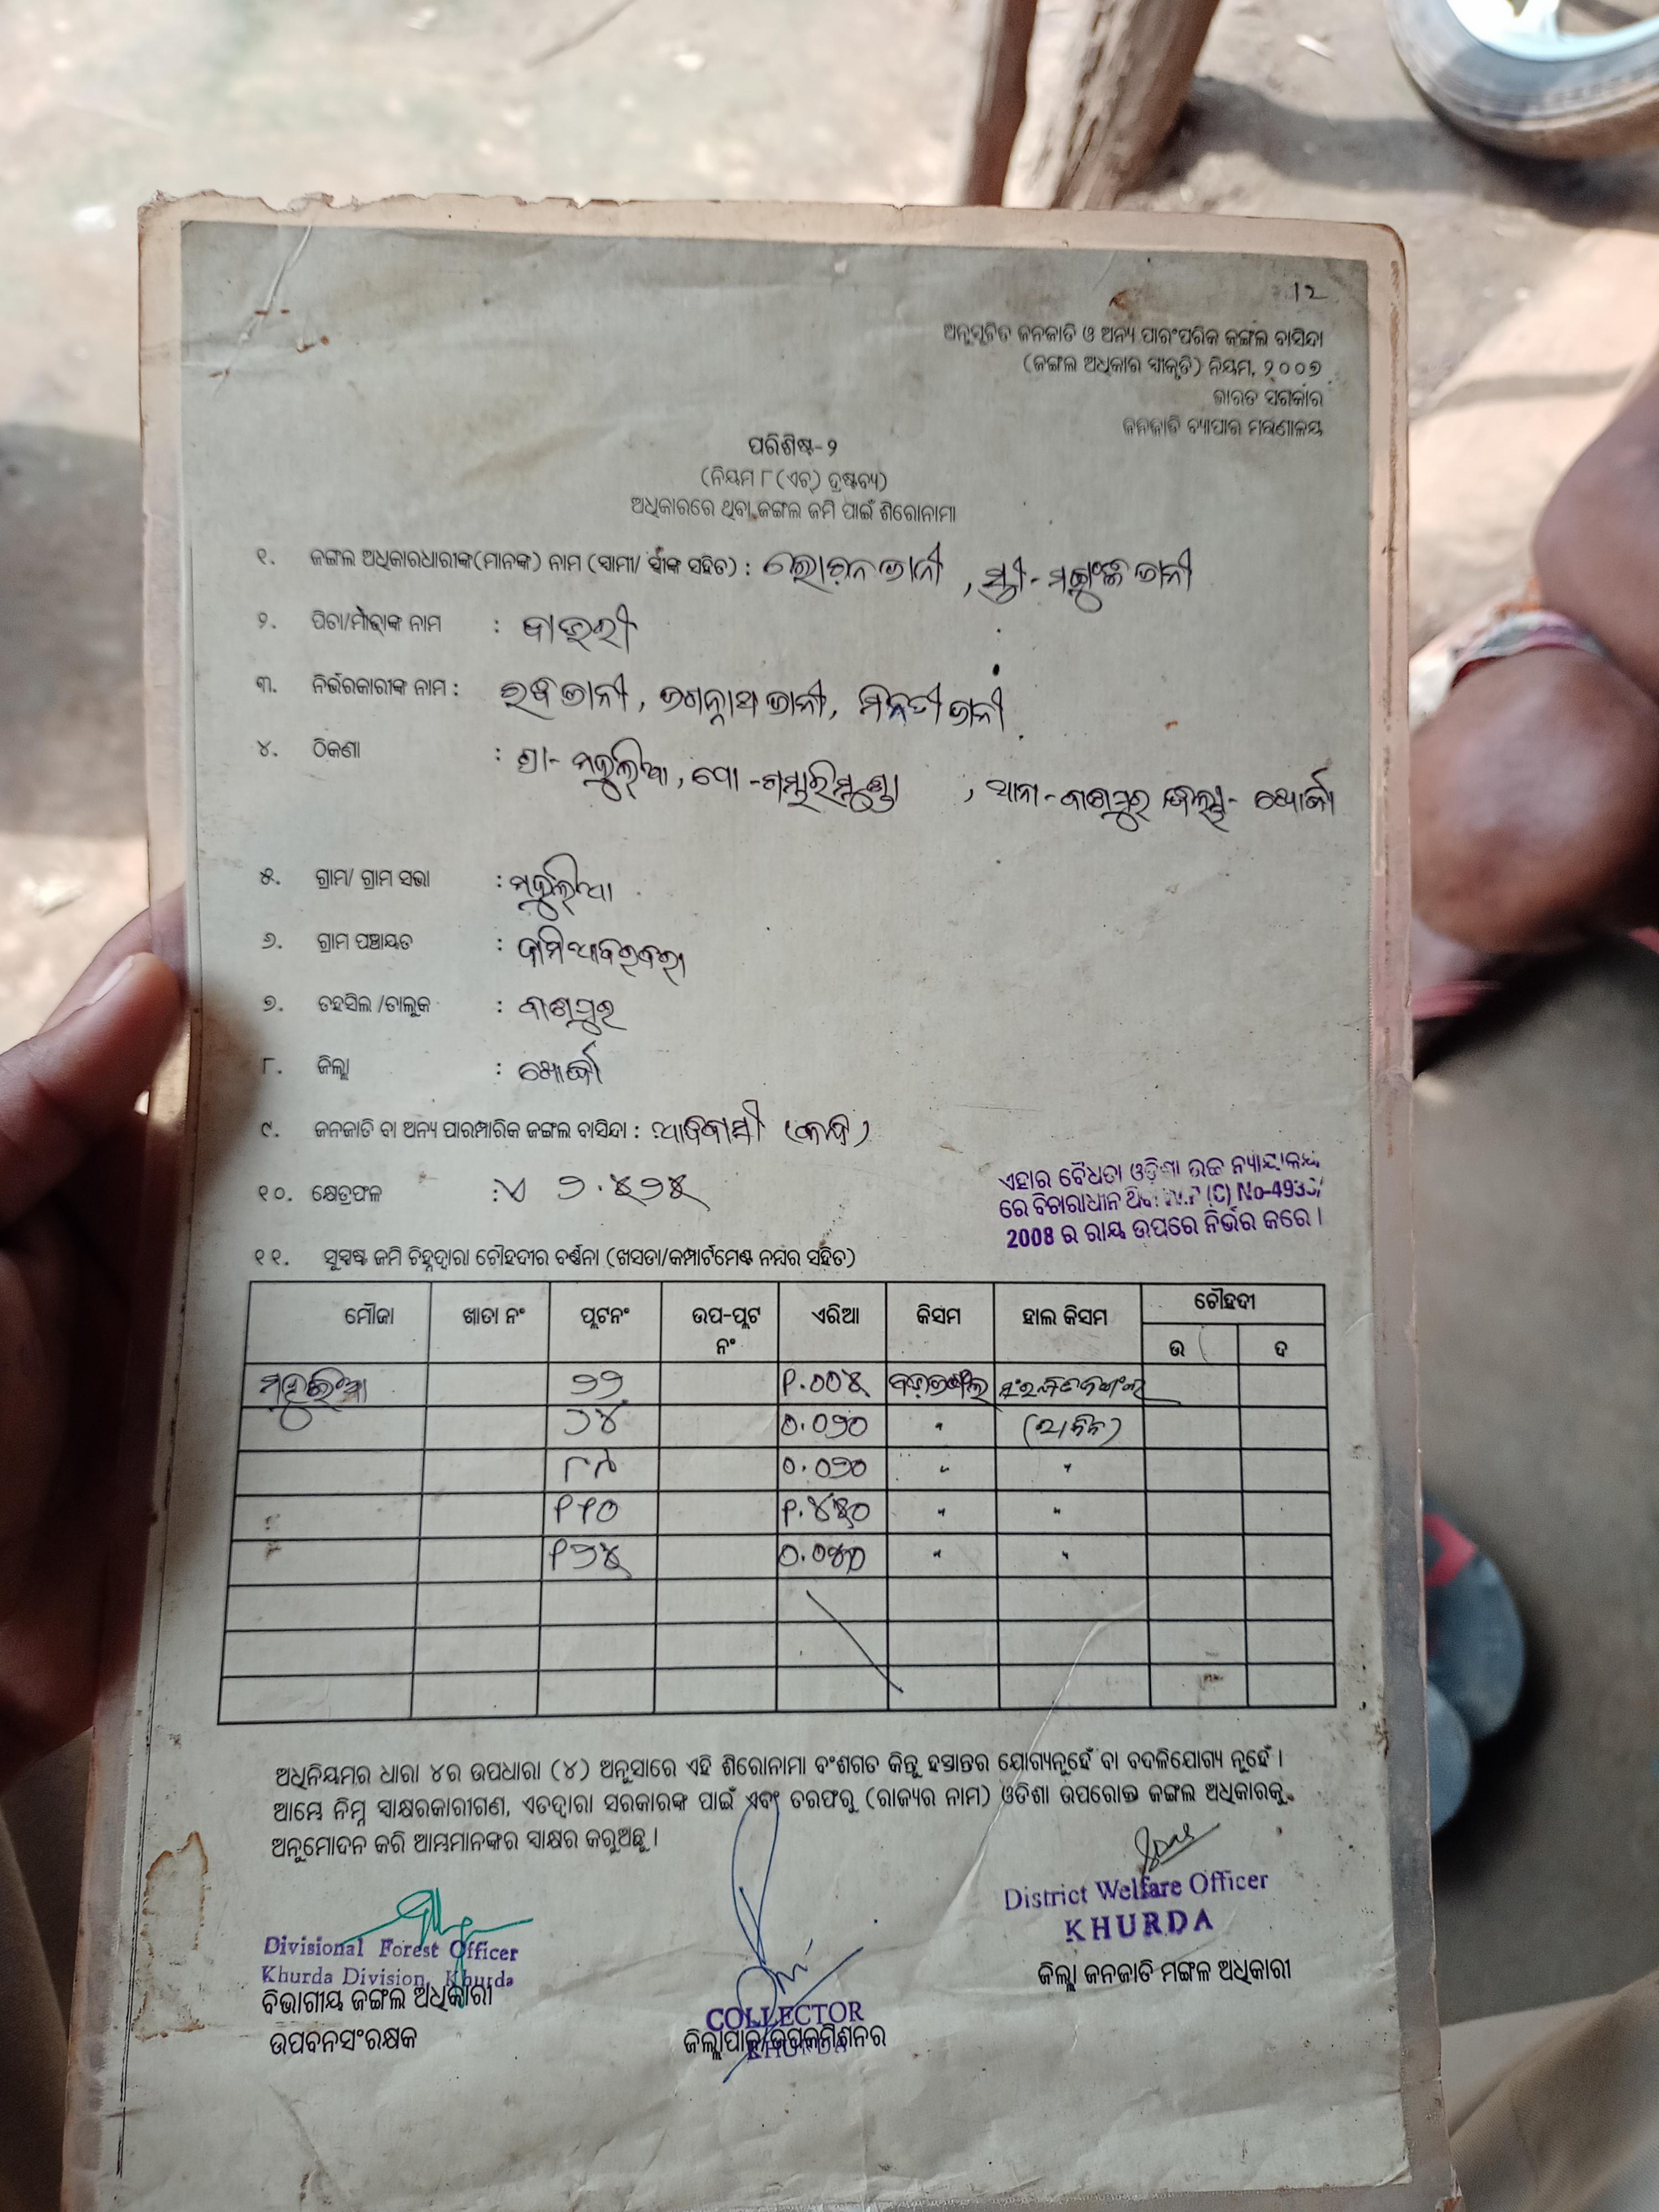 12
ଅନୁସୂଚିତ ଜନଜାତି ଓ ଅନ୍ୟ ପାରଂପରିକ ଜଙ୍ଗଲ ବାସିନ୍ଦା
(ଜଙ୍ଗଲ ଅଧିକାର ସ୍ୱୀକୃତି) ନିୟମ, ୨୦୦୭
ଭାରତ ସରକାର
ଜନଜାତି ବ୍ୟାପାର ମନ୍ତ୍ରଣାଳୟ
ପରିଶିଷ୍ଟ-୨
(ନିୟମ ୮(ଏଚ୍) ଦ୍ରଷ୍ଟବ୍ୟ)
ଅଧିକାରରେ ଥିବା ଜଙ୍ଗଲ ଜମି ପାଇଁ ଶିରୋନାମା
୧. ଜଙ୍ଗଲ ଅଧିକାରଧାରୀଙ୍କ(ମାନଙ୍କ) ନାମ (ସ୍ୱାମୀ/ ସ୍ତ୍ରୀଙ୍କ ସହିତ) : ଜାନୀ , ସ୍ତ୍ରୀ- ଜାନୀ
୨. ପିତା/ମାତାଙ୍କ ନାମ :
୩. ନିର୍ଭରକାରୀଙ୍କ ନାମ : ଜାନୀ , ଜଗନ୍ନାଥ ଜାନୀ, ମିନତୀ ଜାନୀ
୪. ଠିକଣା : ଗ୍ରା- , ପୋ -ଗମ୍ଭାରିମୁଣ୍ଡା , ଥାନା-ବାଣପୁର ଜିଲ୍ଲା- ଖୋର୍ଦ୍ଧା
୫. ଗ୍ରାମ/ ଗ୍ରାମ ସଭା :
୬. ଗ୍ରାମ ପଞ୍ଚାୟତ :
୭. ତହସିଲ /ତାଲୁକ : ବାଣପୁର
୮. ଜିଲ୍ଲା : ଖୋର୍ଦ୍ଧା
୯. ଜନଜାତି ବା ଅନ୍ୟ ପାରମ୍ପାରିକ ଜଙ୍ଗଲ ବାସିନ୍ଦା : ଆଦିବାସୀ
୧୦. କ୍ଷେତ୍ରଫଳ : ଏ ୨.୫୨୫
ଏହାର ବୈଧତା ଓଡ଼ିଶା ଉଚ୍ଚ ନ୍ୟାୟାଳୟ
ରେ ବିଚାରାଧୀନ ଥିବା (C) No-4933/
2008 ର ରାୟ ଉପରେ ନିର୍ଭର କରେ ।
୧୧. ସୁସ୍ପଷ୍ଟ ଜମି ଚିହ୍ନଦ୍ୱାରା ଚୌହଦୀର ବର୍ଣ୍ଣନା (ଖସଡା/କମ୍ପାର୍ଟମେଣ୍ଟ ନମ୍ବର ସହିତ)
ମୌଜା ଖାତା ନଂ ପ୍ଲଟନଂ ଉପ-ପ୍ଲଟ ନଂ ଏରିଆ କିସମ ହାଲ କିସମ ଚୌହଦୀ
ଉ ଦ
୨୨ ୧.୦୦୫
୨୪ ୦.୦୨୦ "
୮୯ ୦.୦୨୦ " "
୧୧୦ " "
୧୨୫ " "
ଅଧିନିୟମର ଧାରା ୪ର ଉପଧାରା (୪) ଅନୁସାରେ ଏହି ଶିରୋନାମା ବଂଶଗତ କିନ୍ତୁ ହସ୍ତାନ୍ତର ଯୋଗ୍ୟନୁହେଁ ବା ବଦଳିଯୋଗ୍ୟ ନୁହେଁ ।
ଆମ୍ଭେ ନିମ୍ନ ସ୍ୱାକ୍ଷରକାରୀଗଣ, ଏତଦ୍ୱାରା ସରକାରଙ୍କ ପାଇଁ ଏବଂ ତରଫରୁ (ରାଜ୍ୟର ନାମ) ଓଡିଶା ଉପରୋକ୍ତ ଜଙ୍ଗଲ ଅଧିକାରକୁ
ଅନୁମୋଦନ କରି ଆମ୍ଭମାନଙ୍କର ସ୍ୱାକ୍ଷର କରୁଅଛୁ ।
District Welfare Officer
KHURDA
ଜିଲ୍ଲା ଜନଜାତି ମଙ୍ଗଳ ଅଧିକାରୀ
Divisional Forest Officer
Khurda Division, Khurda
ବିଭାଗୀୟ ଜଙ୍ଗଲ ଅଧିକାରୀ
ଉପବନସଂରକ୍ଷକ
COLLECTOR
KHURDA
ଜିଲ୍ଲାପାଳ/ଉପକମିଶନର